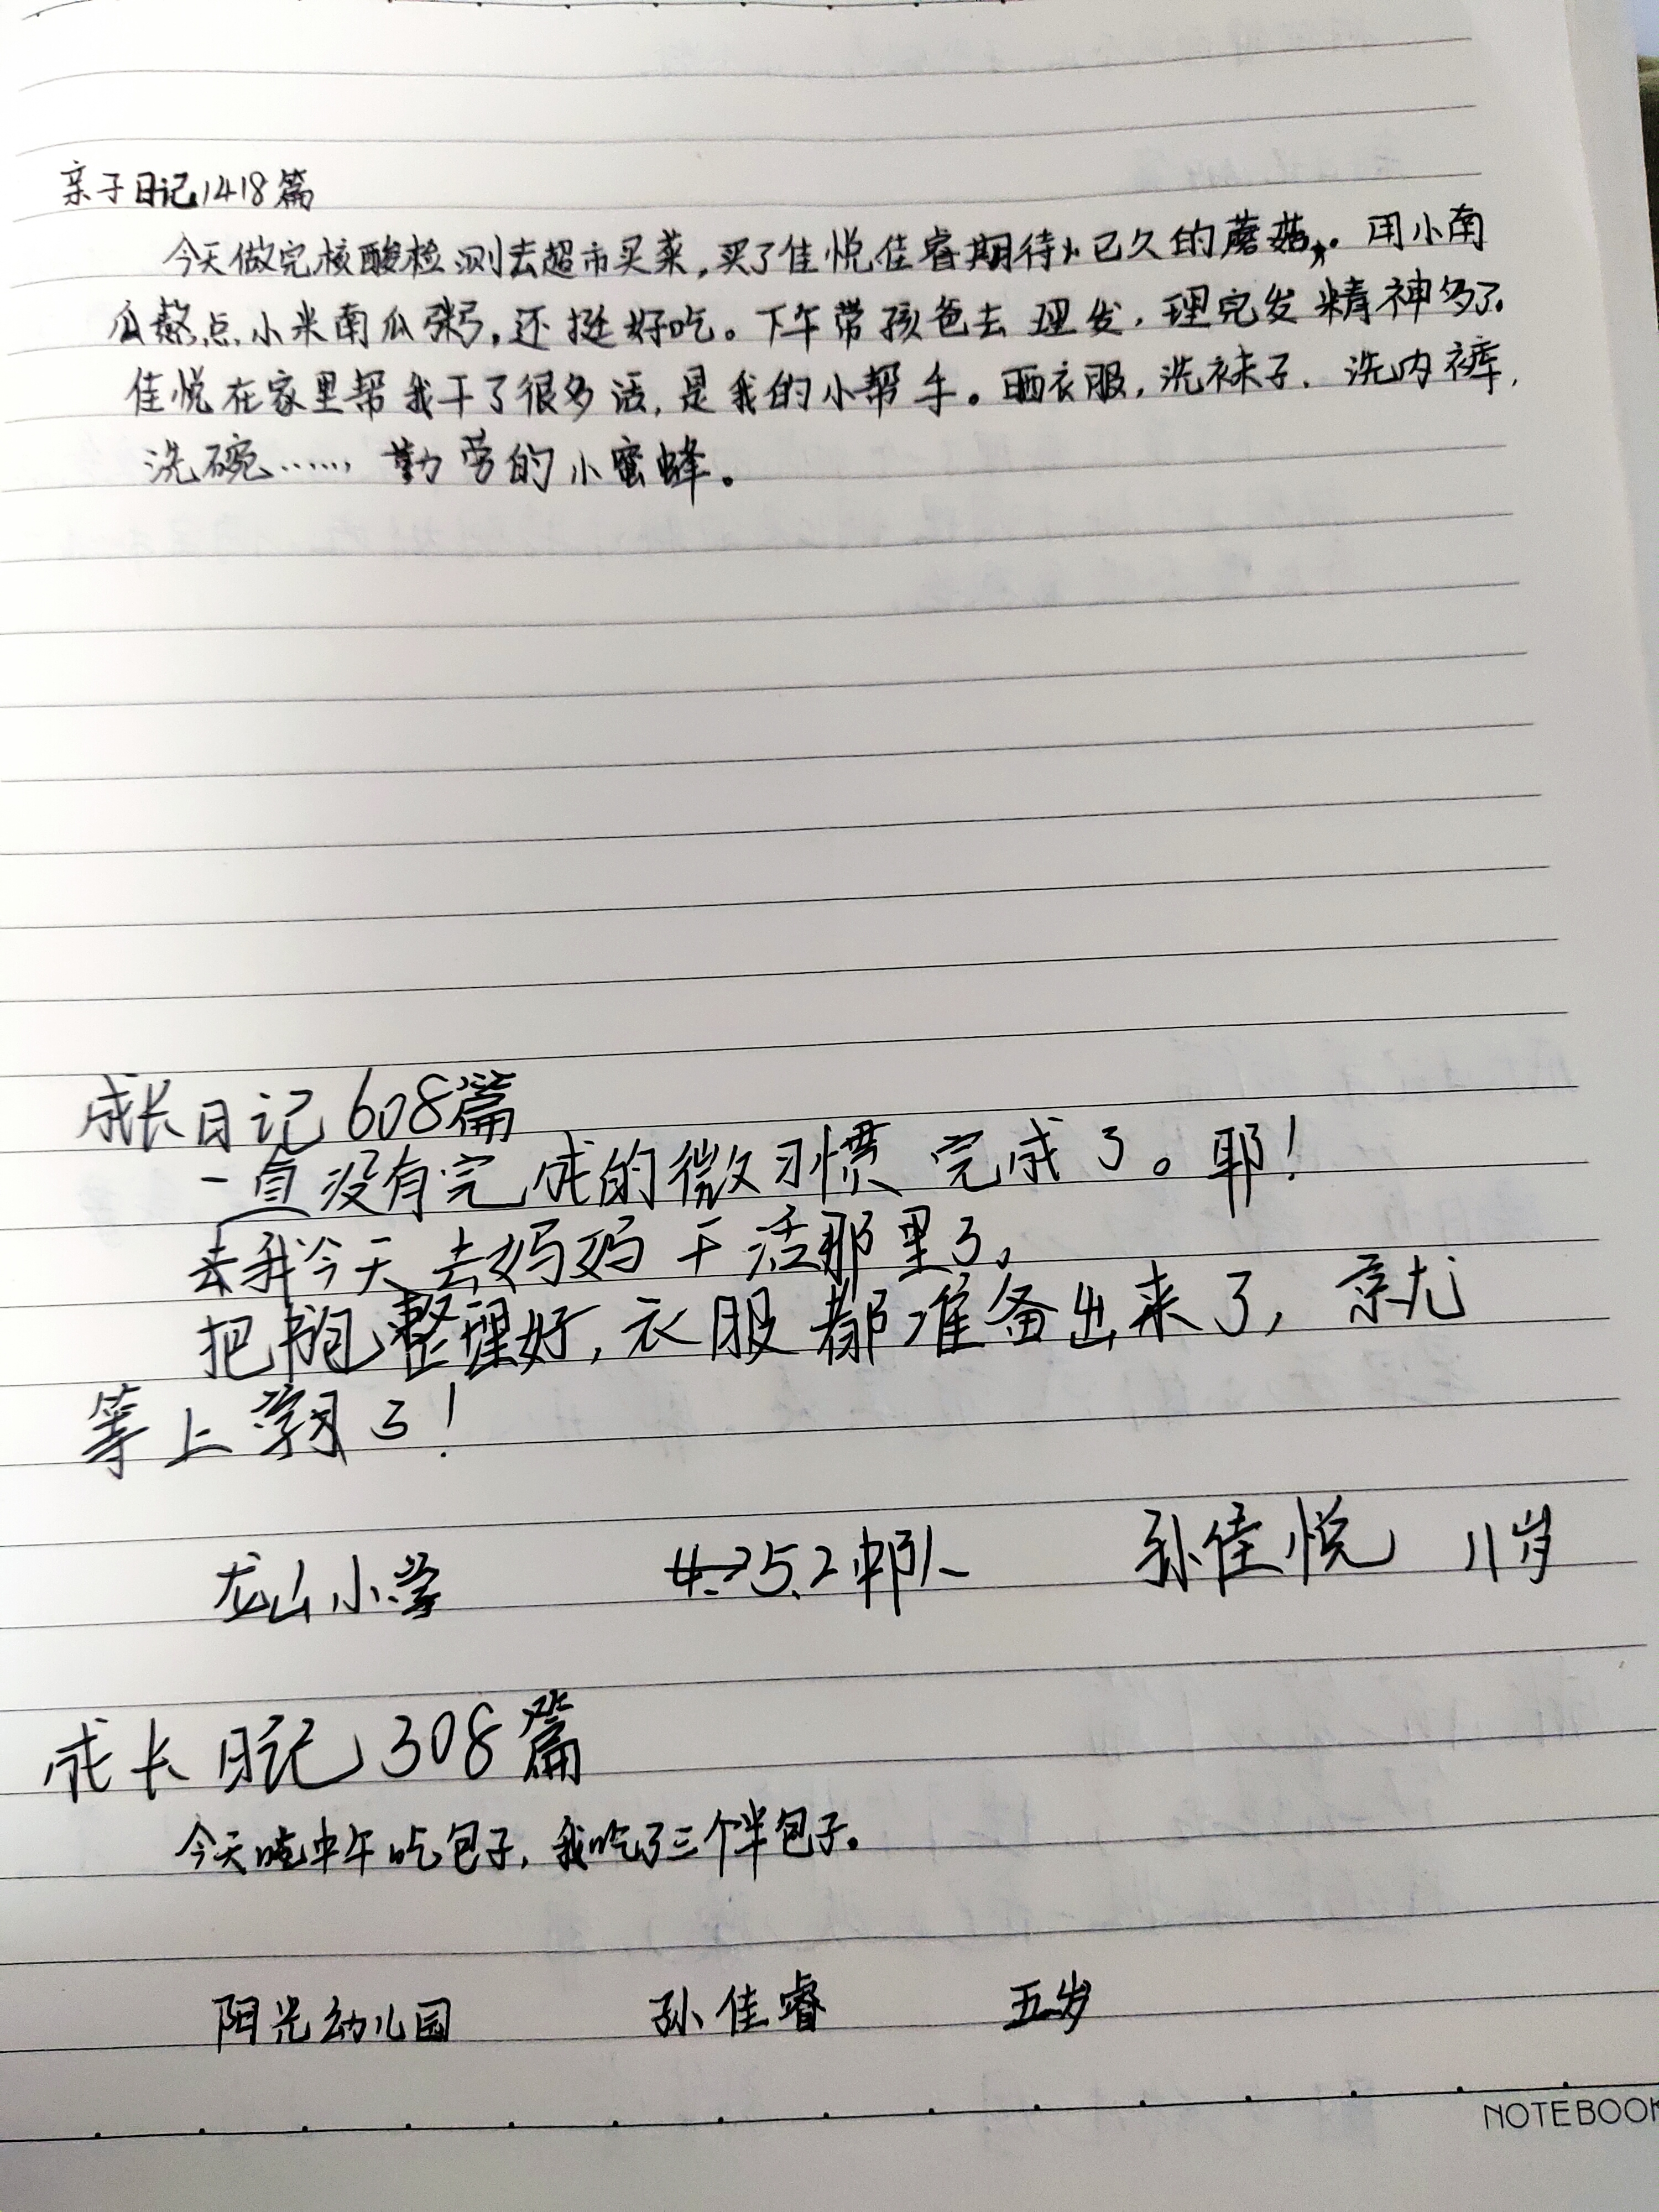 亲子日记1418篇
今天做完核酸检测去超市买菜,买了佳悦佳睿期待已久的蘑菇。用小南
瓜熬点小米南瓜粥,还挺好吃。下午带孩爸去理发,理完发精神多了。
佳悦在家里帮我干了很多活,是我的小帮手。晒衣服,洗袜子,洗内裤,
洗碗……,勤劳的小蜜蜂。
成长日记608篇
一直没有完成的微习惯完成了。耶!
去我今天去妈妈干活那里了。
把书包整理好,衣服都准备出来了,就
等上学了!
龙山小学 4.2→5.2中队 孙佳悦 11岁
成长日记308篇
今天吃中午吃包子,我吃了三个半包子。
阳光幼儿园 孙佳睿 五岁
NOTEBOOK